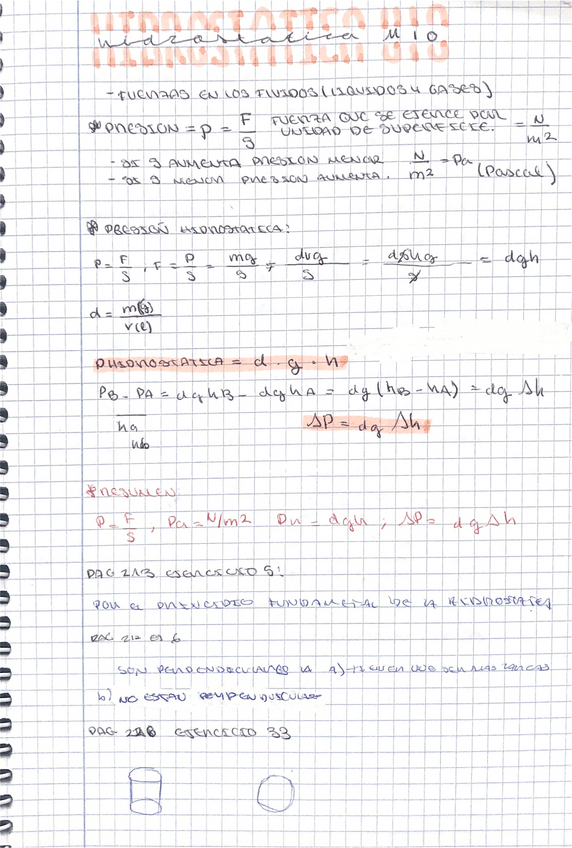 HIDROSTATICA U10
hidrostatica U10
- FUERZAS EN LOS FLUIDOS (LIQUIDOS Y GASES)
* PRESION = P = F/S FUERZA QUE SE EJERCE POR UNIDAD DE SUPERFICIE. = N/m2
- SI S AUMENTA PRESION MENOR N/m2 = Pa (Pascal)
- SI S MENOR PRESION AUMENTA.
* PRESION HIDROSTATICA:
P = F/S , F = P/S = mg/S = dvg/S = dshg/s = dgh
d = m(g)/v(l)
PHIDROSTATICA = d · g · h
PB - PA = dghB - dghA = dg (hB - hA) = dg Δh
ha
ΔP = dg Δh
* RESUMEN
P = F/S , Pa = N/m2 Ph = dgh ; ΔP = dgΔh
PAG 213 EJERCICIO 5:
POR EL PRINCIPIO FUNDAMENTAL DE LA HIDROSTATICA
PAG 212 EJ 6
SON PERPENDICULARES LA a) TIENEN QUE SER MAS
b) NO ESTAN PERPENDICULAR
EJERCICIO 33